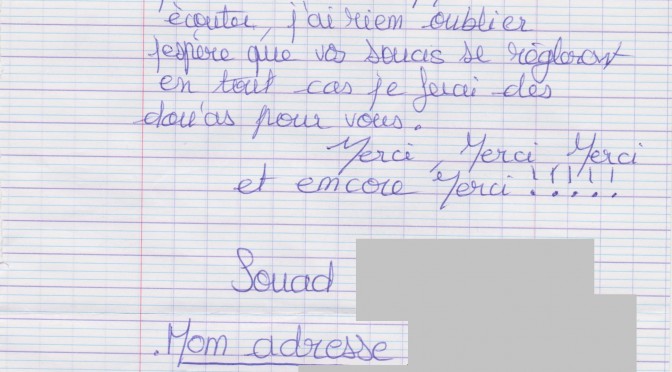 écouter, j'ai riem oublier
j'espère que vos soucis se régleront
en tout cas je ferai des
dou'as pour vous.
Merci, Merci Merci
et emcore Merci !!!!!
Souad
. Mom adresse